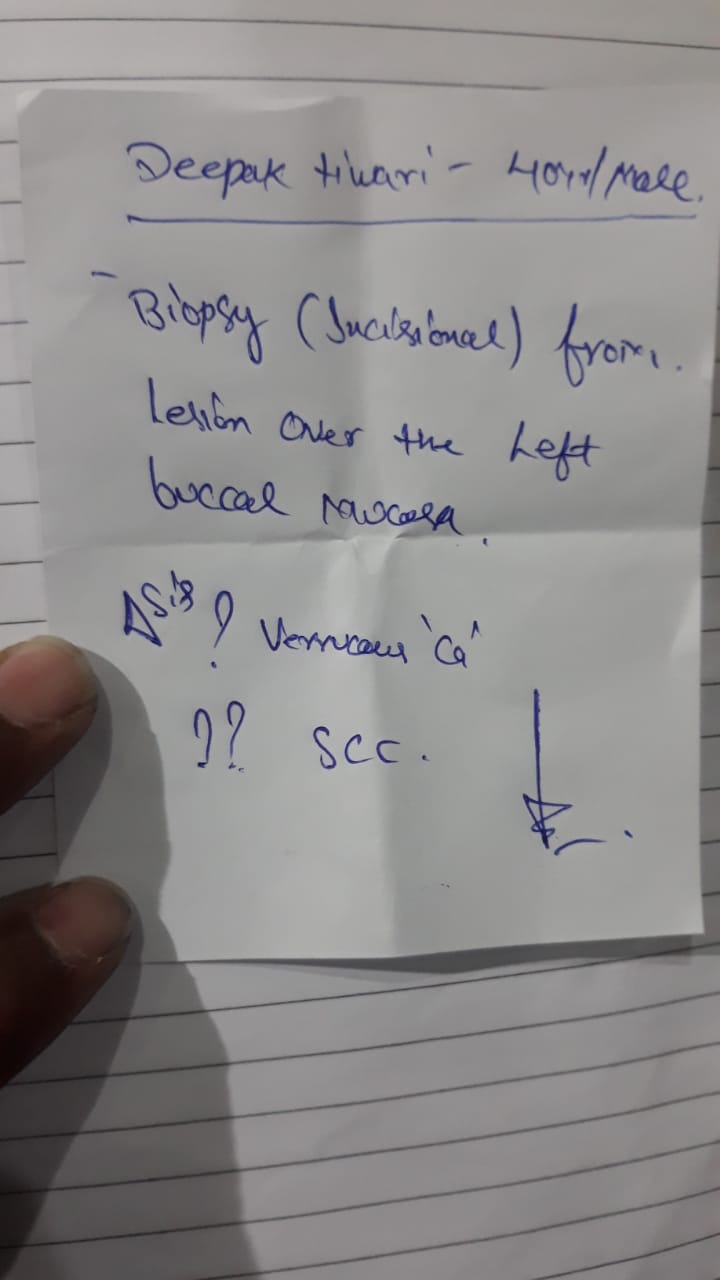 Deepak tiwari - 40yr/Male.
- Biopsy (Incisional) from
Lesion over the Left
buccal mucosa.
Δsis ? Verrucous 'Ca'
?? SCC.